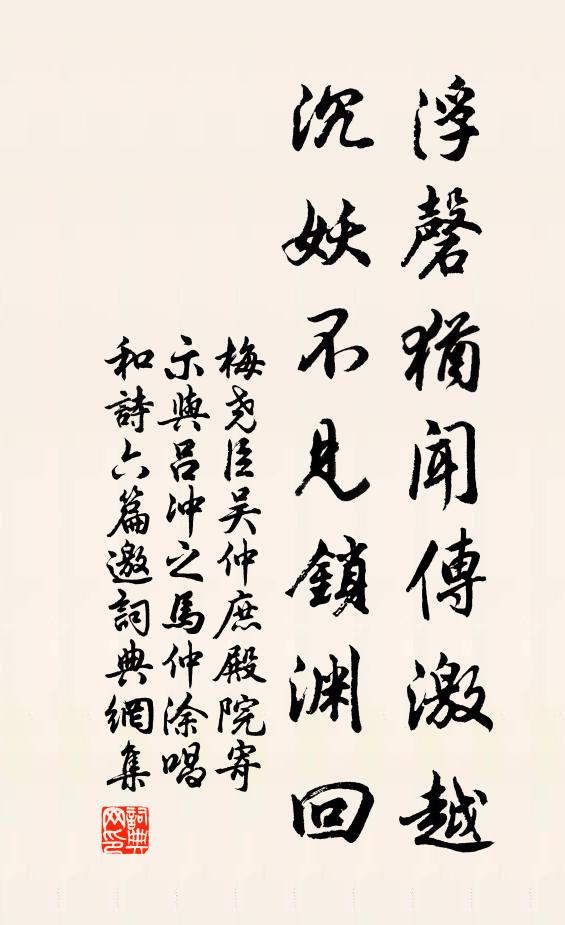 浮磬猶聞傳激越
沉妖不見鎖渊回
梅堯臣吴仲庶殿院寄
示與吕冲之馬仲涂唱
和詩六篇邀詞典網集
詞典
网印